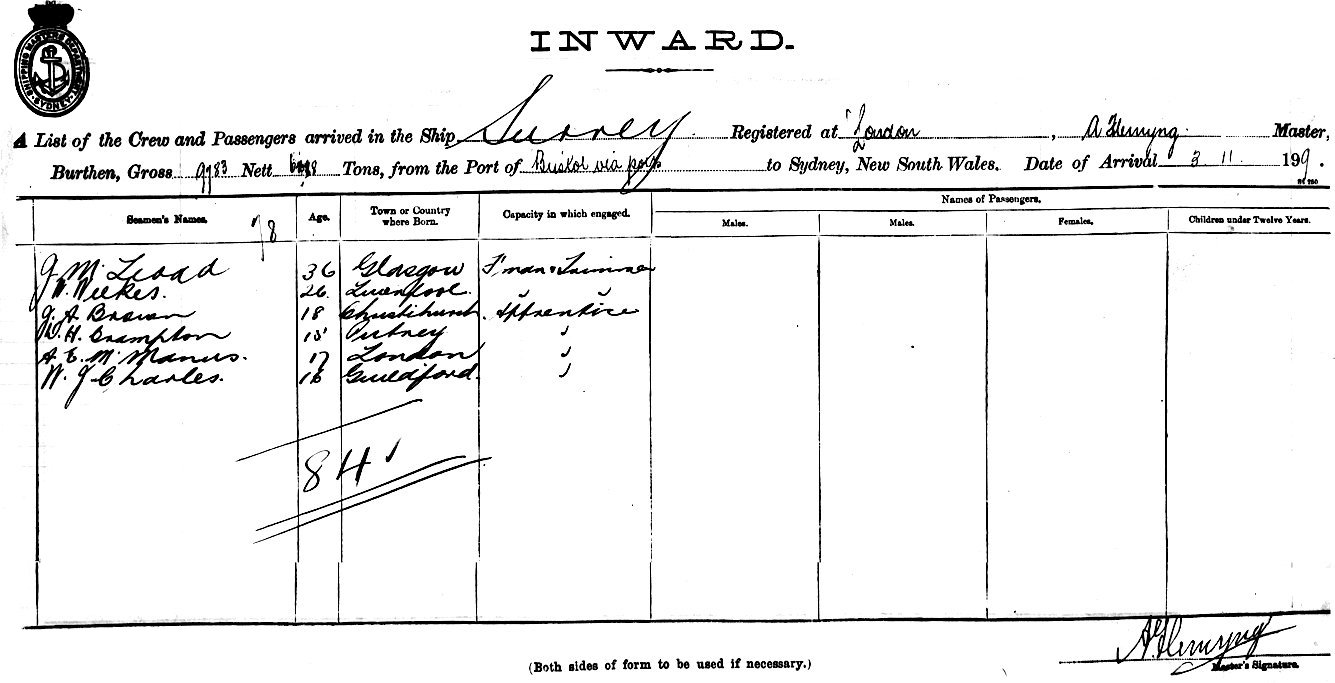 SHIPPING MASTER'S DEPARTMENT SYDNEY
INWARD.
A List of the Crew and Passengers arrived in the Ship Surrey Registered at London, A Flemyng Master,
Burthen, Gross 9783 Nett Tons, from the Port of Bristol via to Sydney, New South Wales. Date of Arrival 3 11 199.
Names of Passengers.
Seamen's Names. Age. Town or Country where Born. Capacity in which engaged. Males. Males. Females. Children under Twelve Years.
78
J. Mc 36 Glasgow F'man & Trimmer
W. Weekes. 26. Liverpool. " "
J. A Brown 18 Apprentice
H. Brampton 15 Putney "
A. E. Mc Manus. 17 London "
W. J Charles. 16 Guildford. "
84
A Flemyng
Master's Signature.
(Both sides of form to be used if necessary.)